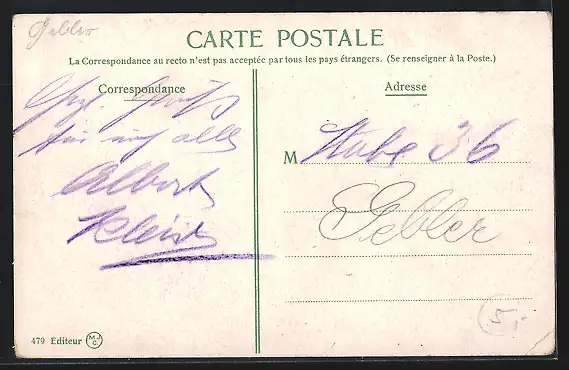 Gebler
CARTE POSTALE
La Correspondance au recto n'est pas acceptée par tous les pays étrangers. (Se renseigner à la Poste.)
Correspondance
Adresse
Hrzl. Gruß
für euch alle
Albert
Kleist
M Stube 36
Gebler
5,-
479 Editeur